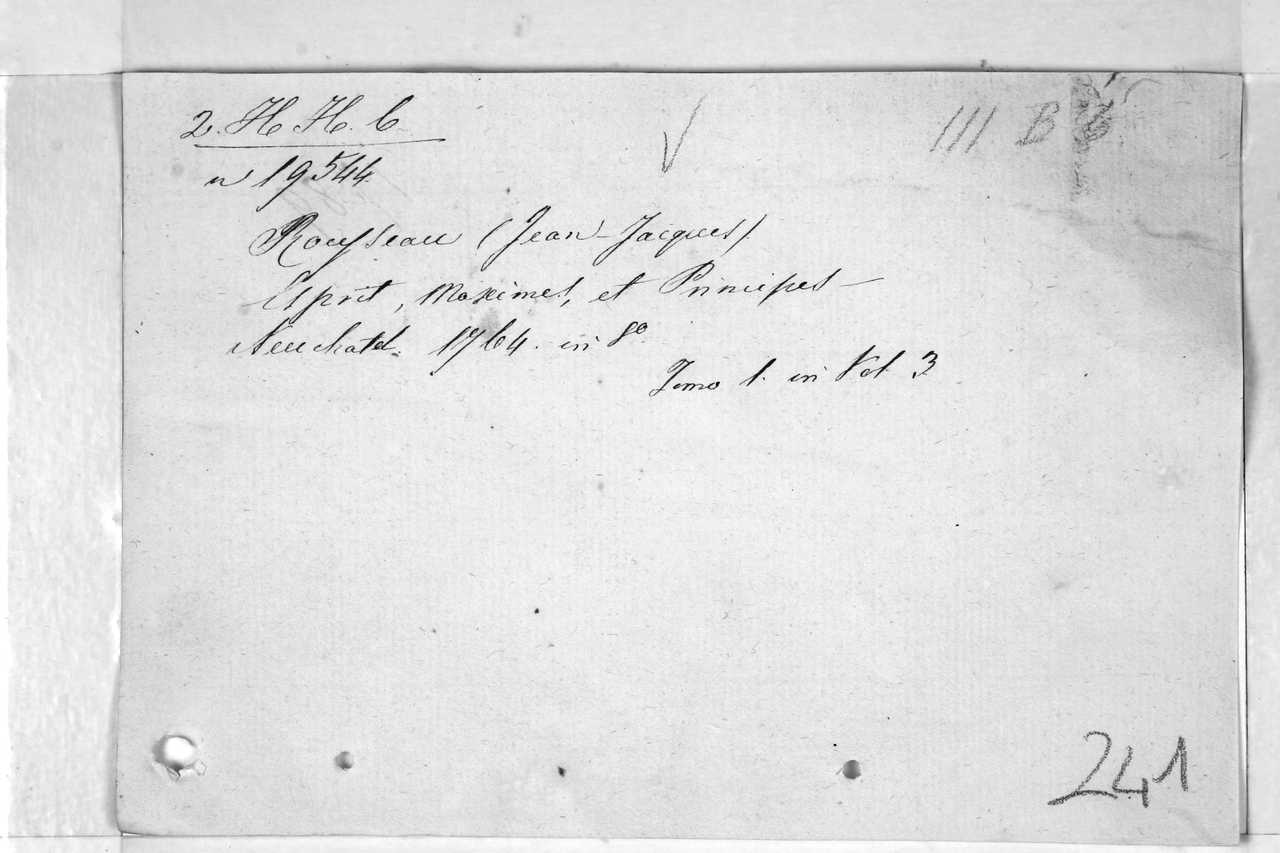 2. H. H. 6
n 19544
III B
Rousseau (Jean-Jacques)
Esprit, Maximes, et Principes —
Neuchatel. 1764. in 8º
Tomo 1. in Vol 3
241